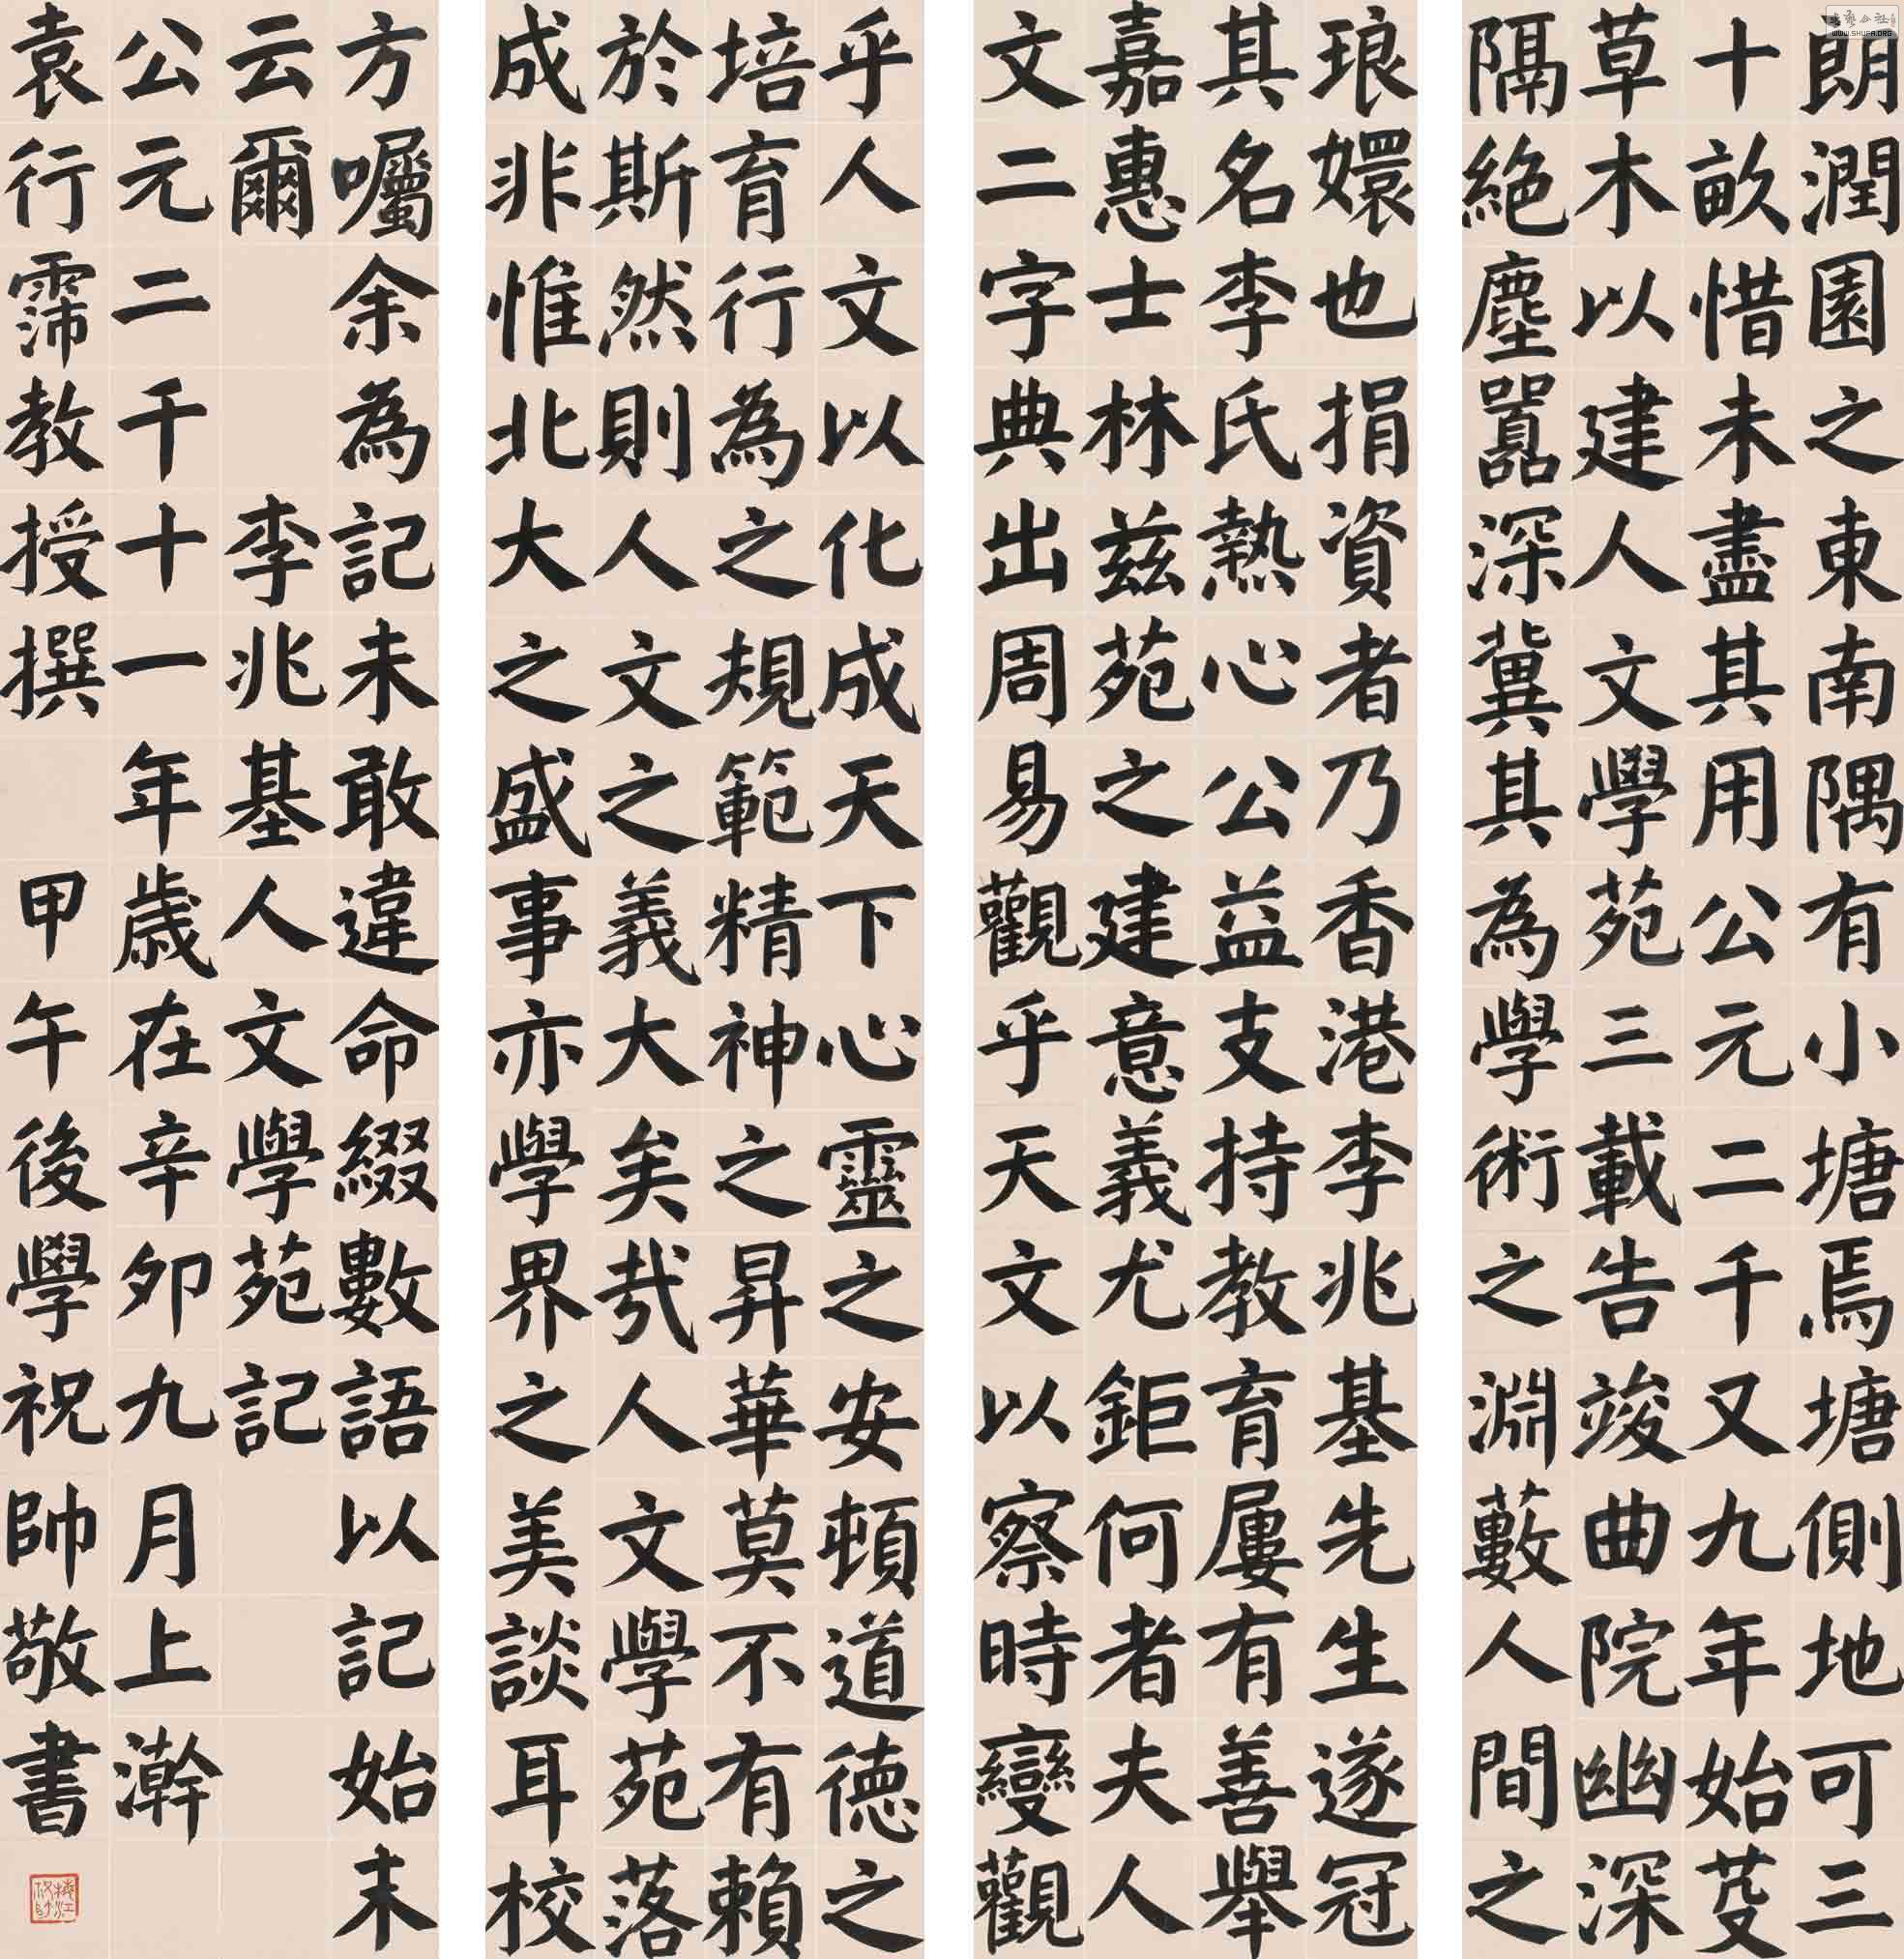 朗潤園之東南隅有小塘焉塘側地可三
十畝惜未盡其用公元二千又九年始芟
草木以建人文學苑三載告竣曲院幽深
隔絕塵囂深冀其為學術之淵藪人間之
琅嬛也捐資者乃香港李兆基先生遂冠
其名李氏熱心公益支持教育屢有善舉
嘉惠士林茲苑之建意義尤鉅何者夫人
文二字典出周易觀乎天文以察時變觀
乎人文以化成天下心靈之安頓道德之
培育行為之規範精神之昇華莫不有賴
於斯然則人文之義大矣哉人文學苑落
成非惟北大之盛事亦學界之美談耳校
方囑余為記未敢違命綴數語以記始末
云爾 李兆基人文學苑記
公元二千十一年歲在辛卯九月上澣
袁行霈教授撰 甲午後學祝帥敬書
WWW.SHUFA.ORG